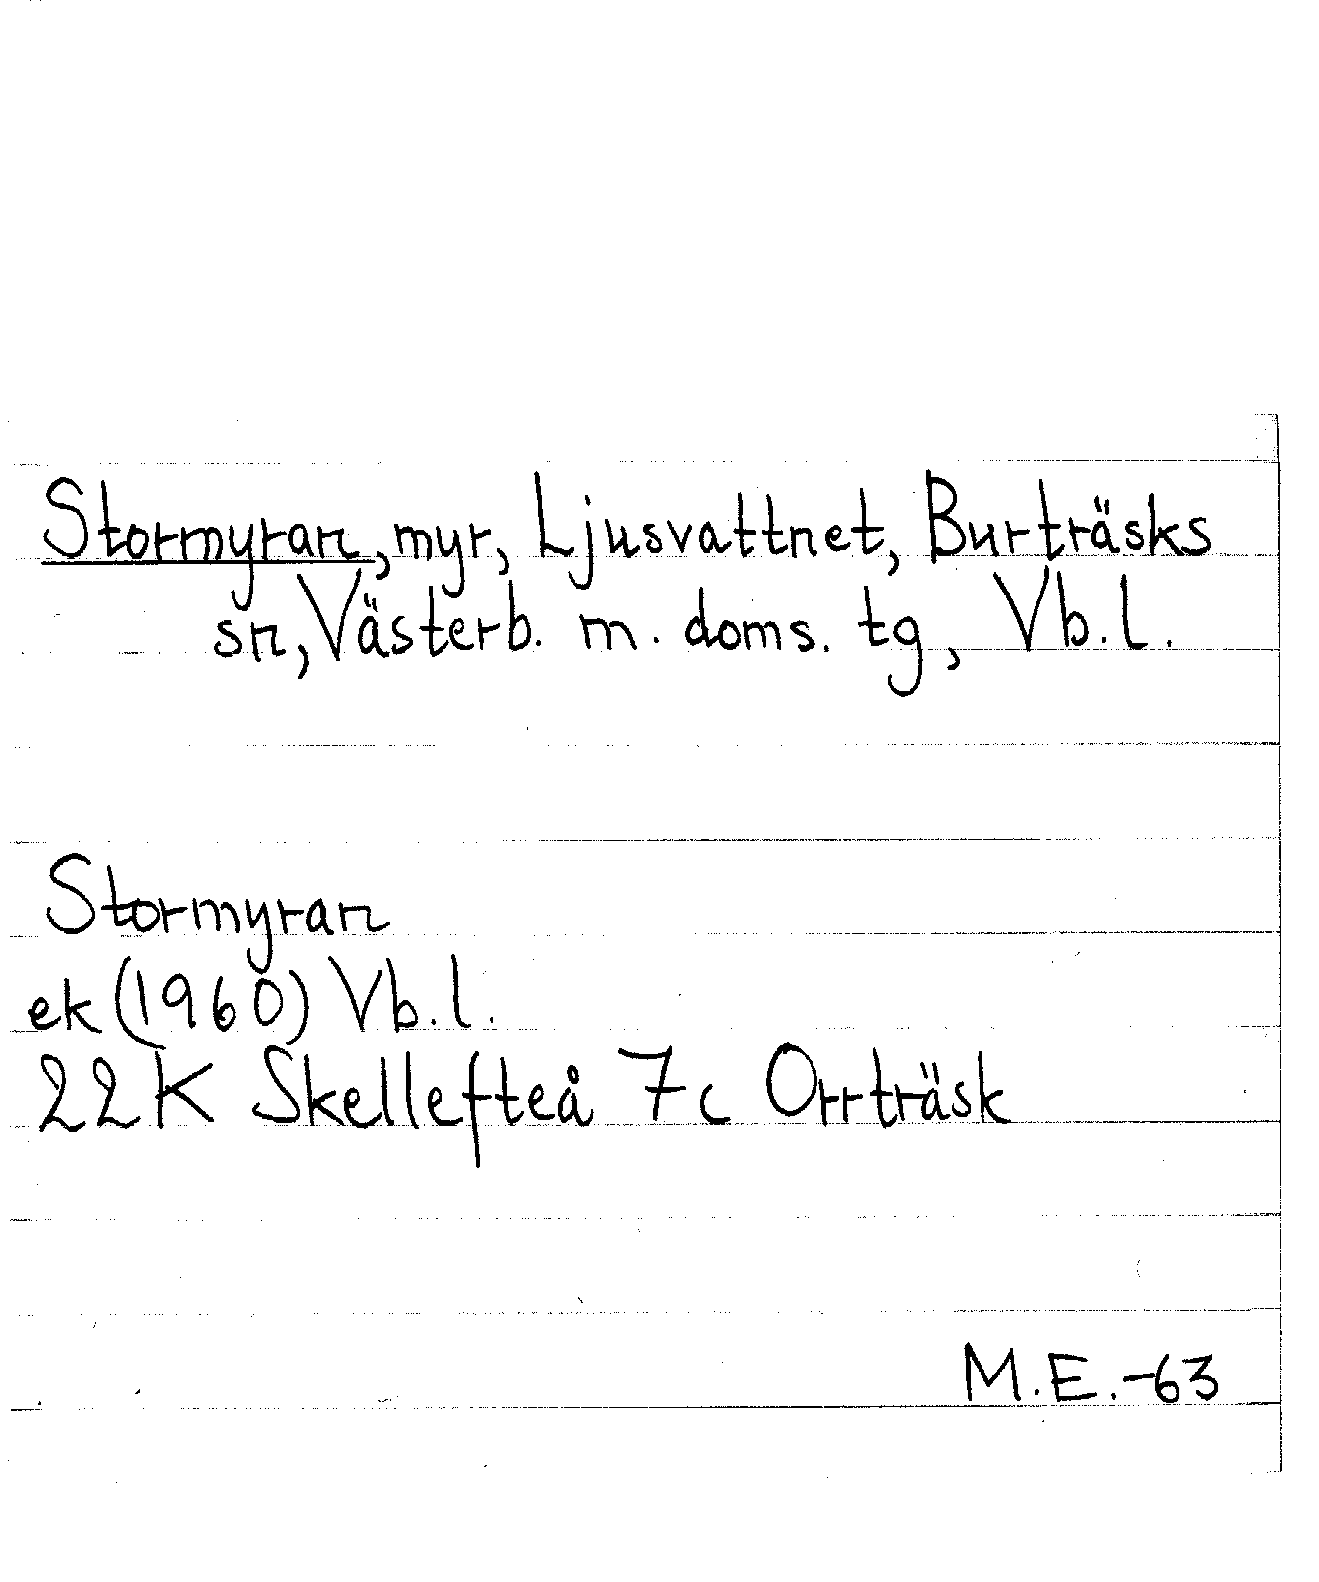 Stormyran, myr, Ljusvattnet, Burträsks
sn, Västerb. m. doms. tg, Vb. l.
Stormyran
ek (1960) Vb. l.
22K Skellefteå 7c Orrträsk
M.E.-63